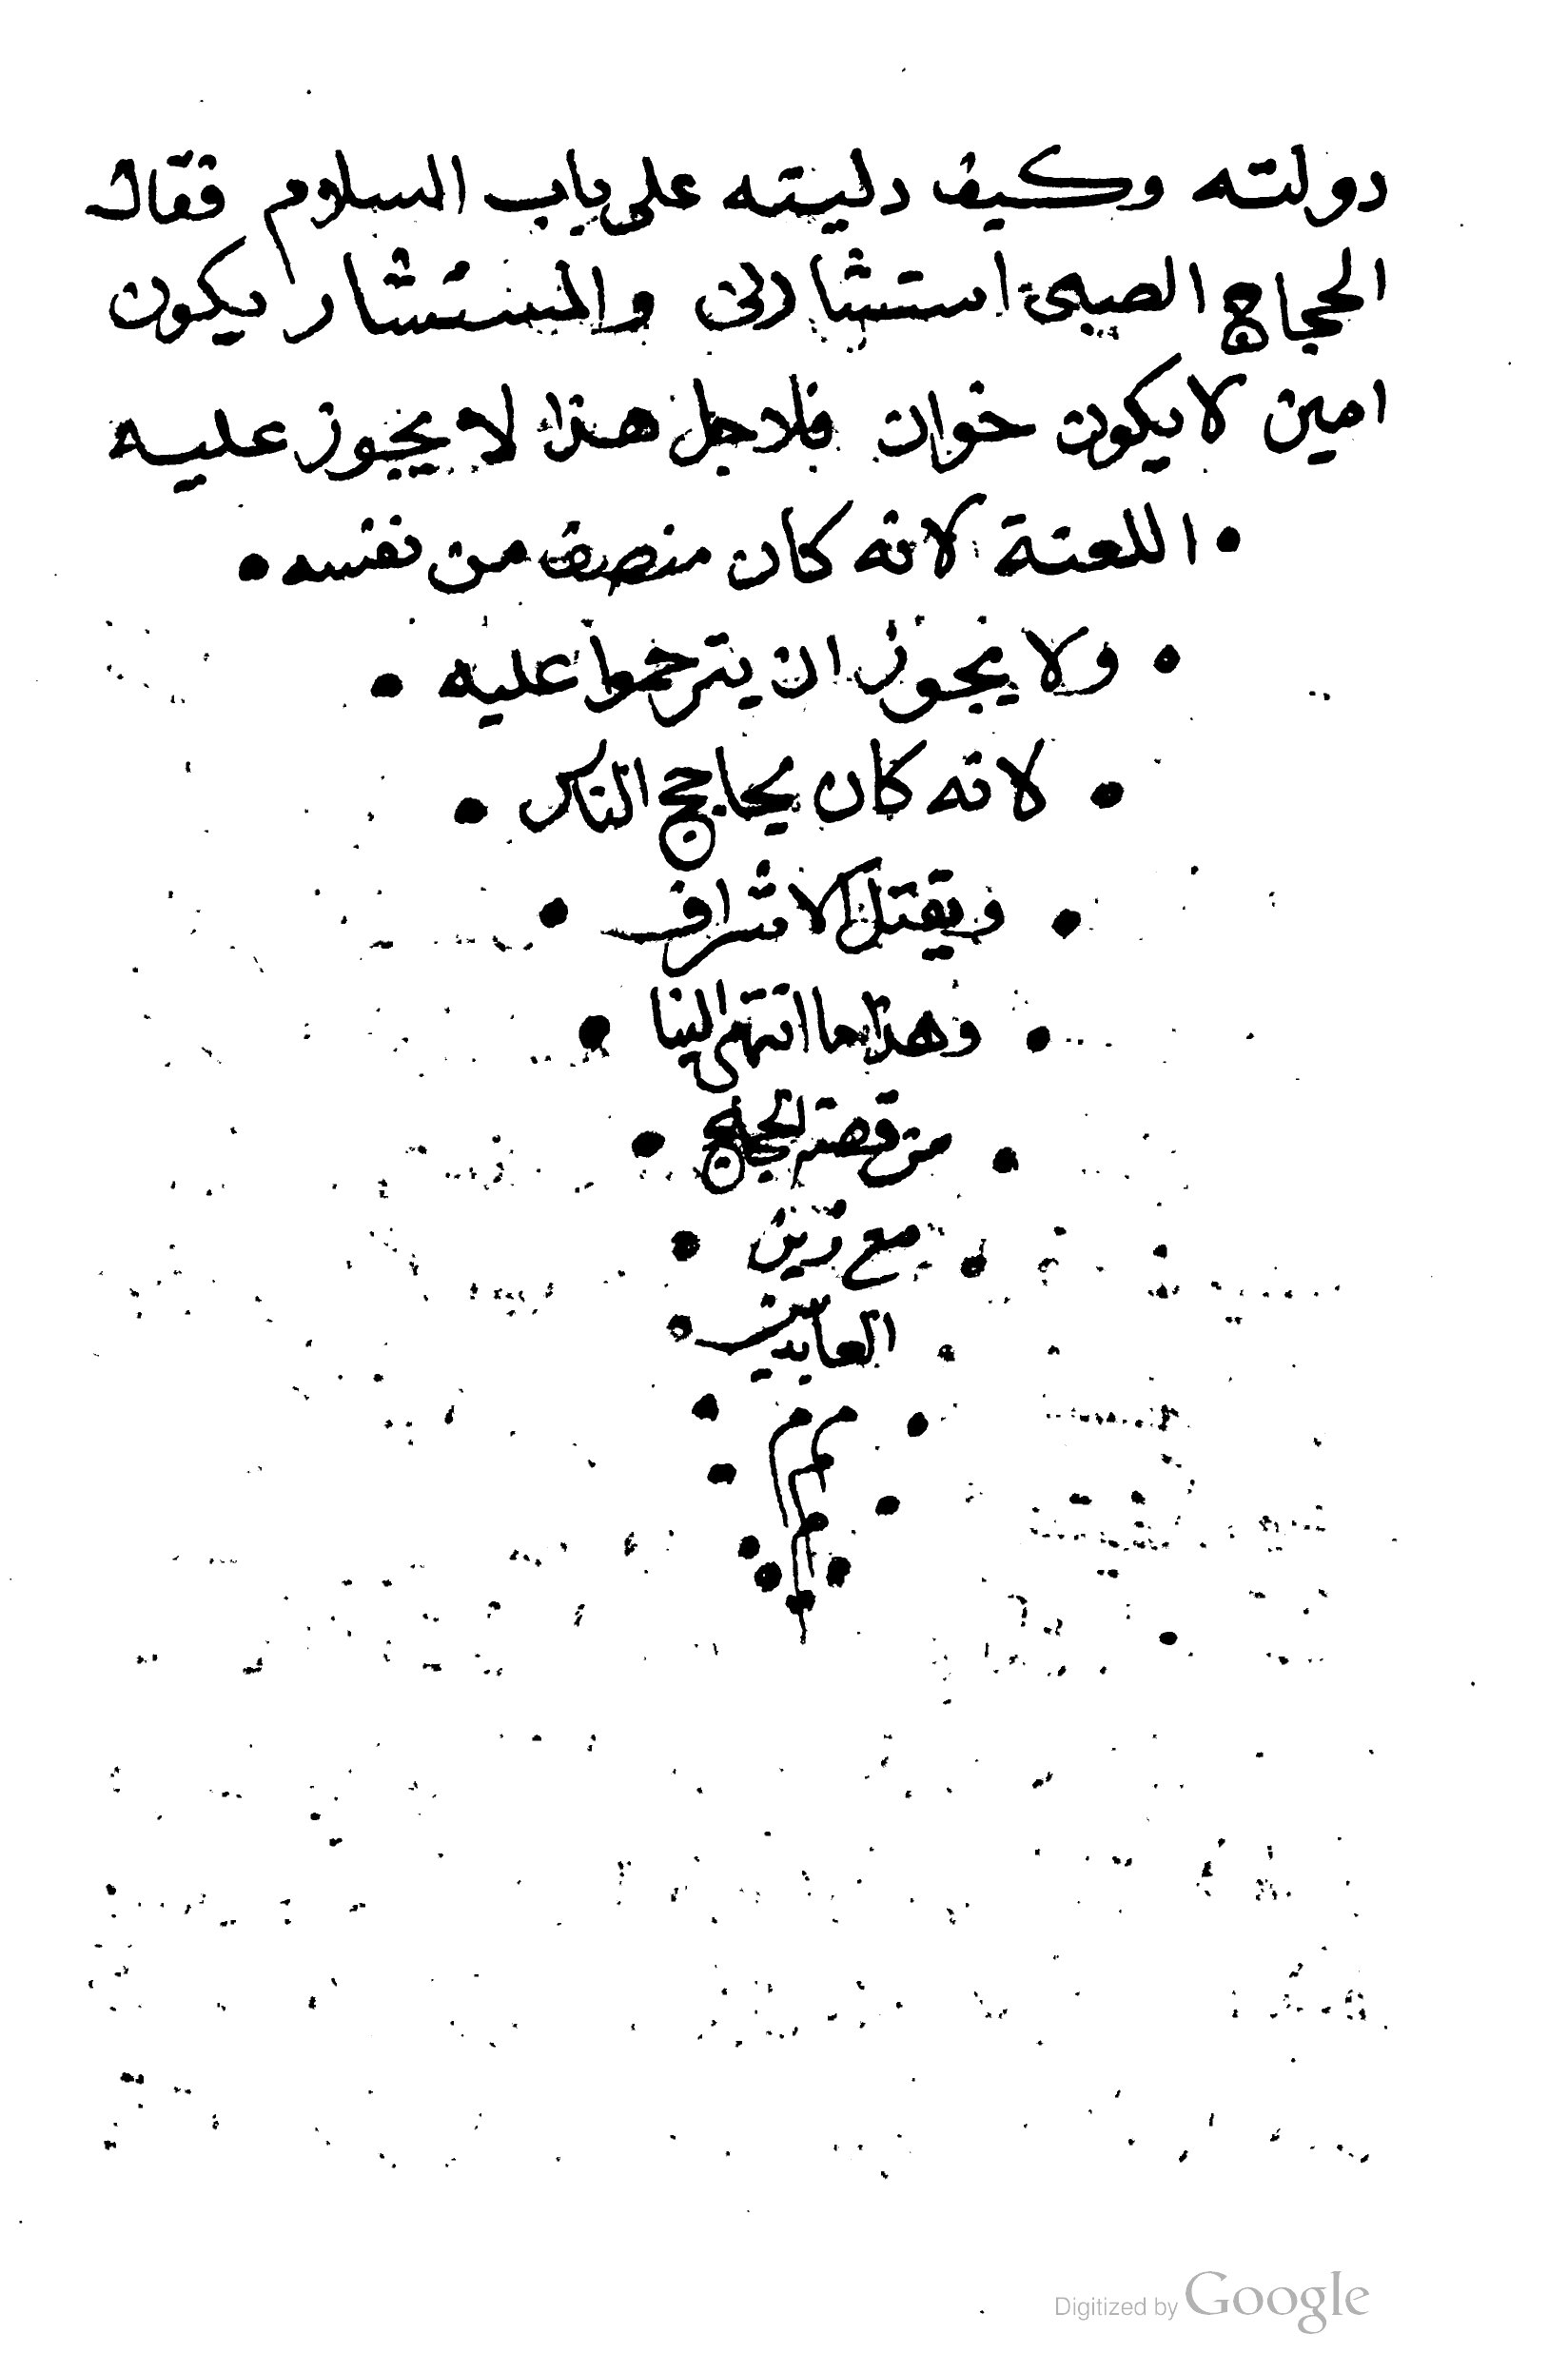 دولته وكيف دليته على باب السلام فقال
الحجاج الصبى استشارنى والمستشار يكون
امين لا يكون خوان فلاجل هذا لا يجوز عليه
• اللعنة لانه كان منصف من نفسه •
• ولا يجوز ان يترحموا عليه •
• لانه كان يحاجج الناس •
• ويقتل الاشراف •
• وهذا ما انتهى الينا •
• من قصة الحجاج •
• مع زين •
• العابدين •
• م م •
م
Digitized by Google